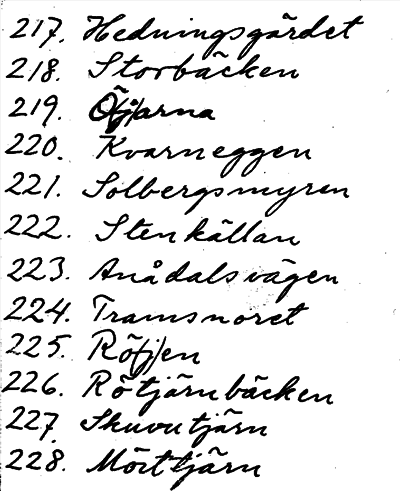 217. Hedningsgärdet
218. Storbäcken
219. Ö(j)arna
220. Kvarneggen
221. Solbergsmyren
222. Stenkällan
223. Anådalsvägen
224. Tramsnoret
225. Rö(j)en
226. Rötjärnbäcken
227. Skuvutjärn
228. Mörttjärn